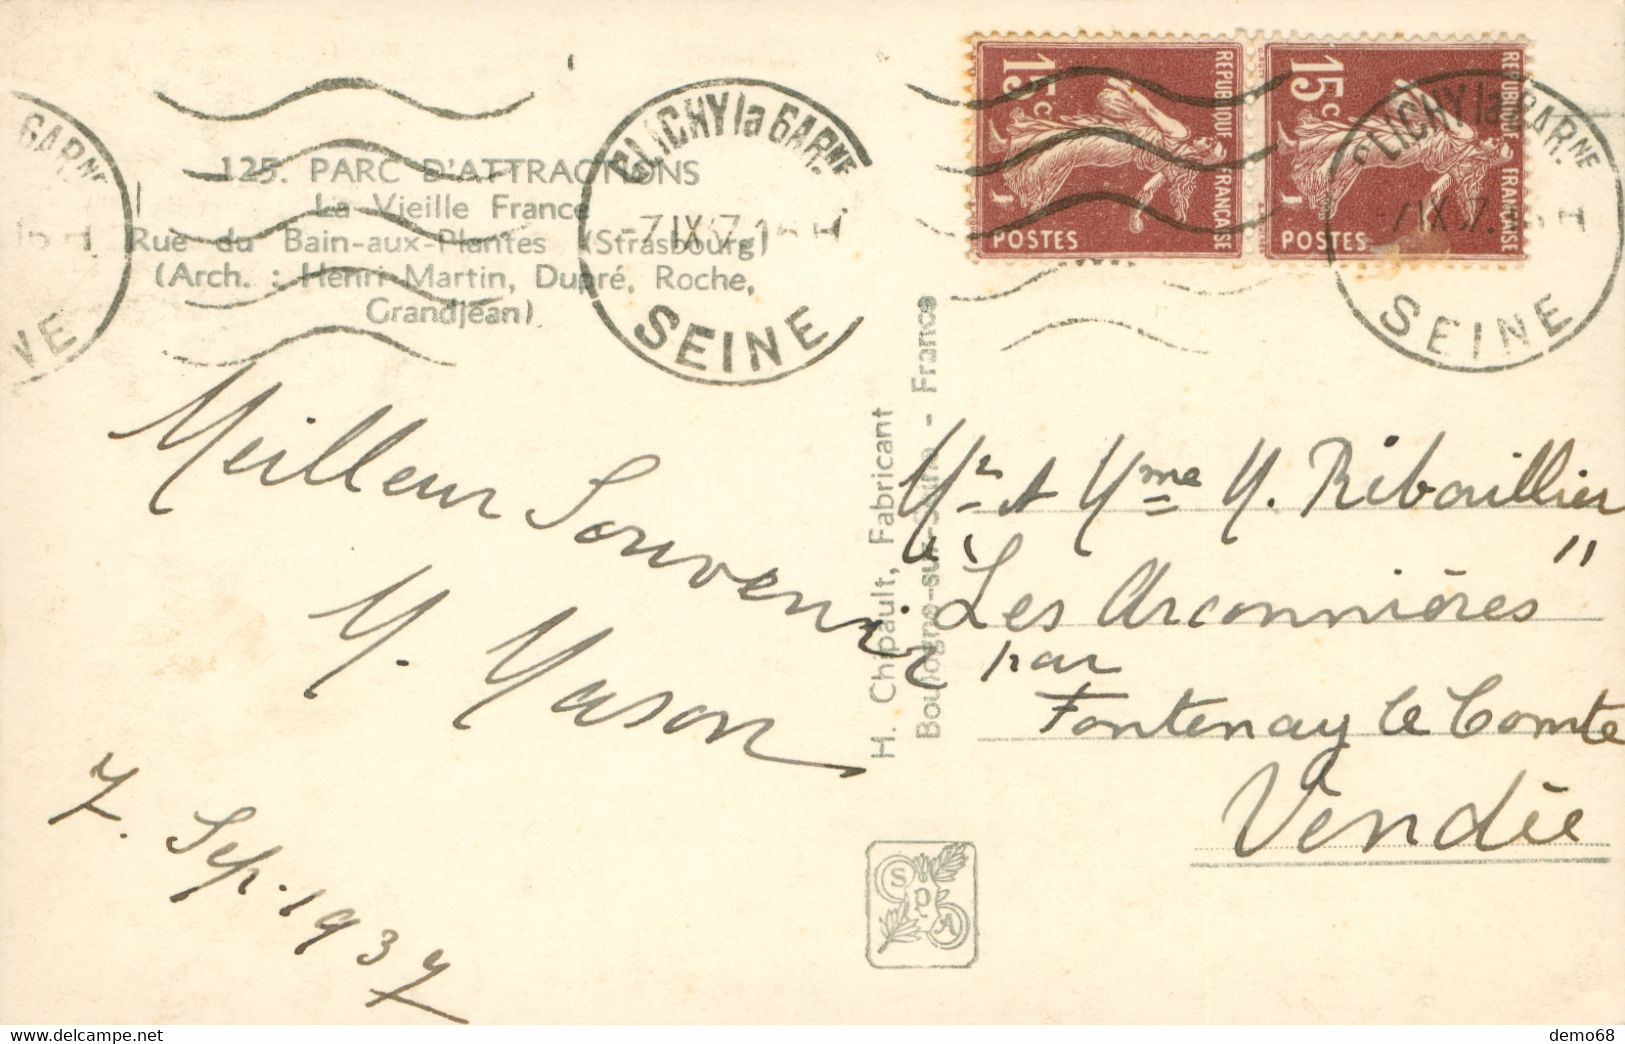 125. PARC D'ATTRACTIONS
La Vieille France
Rue du Bain-aux-Plantes (Strasbourg)
(Arch. : Henri-Martin, Dupré, Roche,
Grandjean)
GARNE
15 I
NE
CLICHY la GARNE
-7 IX 37. 15 I
SEINE
REPUBLIQUE FRANÇAISE
15c
POSTES
REPUBLIQUE FRANÇAISE
15c
POSTES
CLICHY la GARNE
-7 IX 37. 15 I
SEINE
Meilleur Souvenir
M. Mason
7. Sep. 1937
H. Chipault, Fabricant
Boulogne-sur-Seine - France
Mr et Mme M. Ribouillier
"Les Arconnières"
par
Fontenay le Comte
Vendée
S P A
demo68